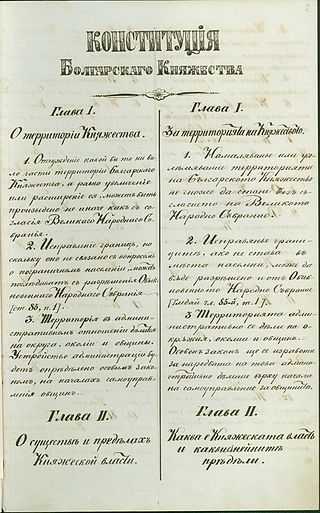 КОНСТИТУЦІЯ
БОЛГАРСКАГО КНЯЖЕСТВА
Глава I.
О территоріи Княжества.
1. Отчужденіе какой бы то ни бы-
ло части территоріи болгарскаго
Княжества, а равно увеличеніе
или расширеніе ея, можетъ быть
произведено не иначе какъ съ со-
гласія Великаго Народнаго Со-
бранія.
2. Исправленіе границъ, по-
скольку оно не связано съ вопросомъ
о пограничномъ населеніи, можетъ
послѣдовать съ разрѣшенія Обык-
новеннаго Народнаго Собранія
[ст. 85, п. 1].
3. Территорія въ админи-
стративномъ отношеніи дѣлится
на округа, околіи и общины.
Устройство администраціи бу-
детъ опредѣлено особымъ зако-
номъ, на началахъ самоуправ-
ленія общинъ.
Глава II.
О существѣ и предѣлахъ
Княжеской власти.
Глава I.
За территорията на Княжеството.
1. Намаляванье или
уголѣмяванье территорията
на Българското Княжество
не може да стане безъ
съгласието на Великото
Народно Събрание.
2. Исправянье грани-
цитѣ, ако не става въ
мѣста населени, може да
бѫде разрѣшено и отъ Обик-
новенното Народно Събрание
3. Територията адми-
нистративно се дѣли на о-
крѫжия, околии и общини.
Особенъ законъ ще се изработи
за наредбата на това админи-
стративно дѣление върху начала
на самоуправление за общинитѣ.
Глава II.
Каква е Княжеската власть
и каква
прѣдѣли.